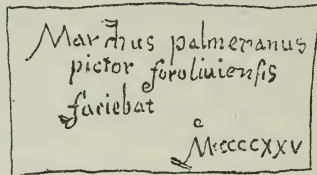 Marchus palmezanus
pictor foroliuiensis
faciebat
MccccXXV